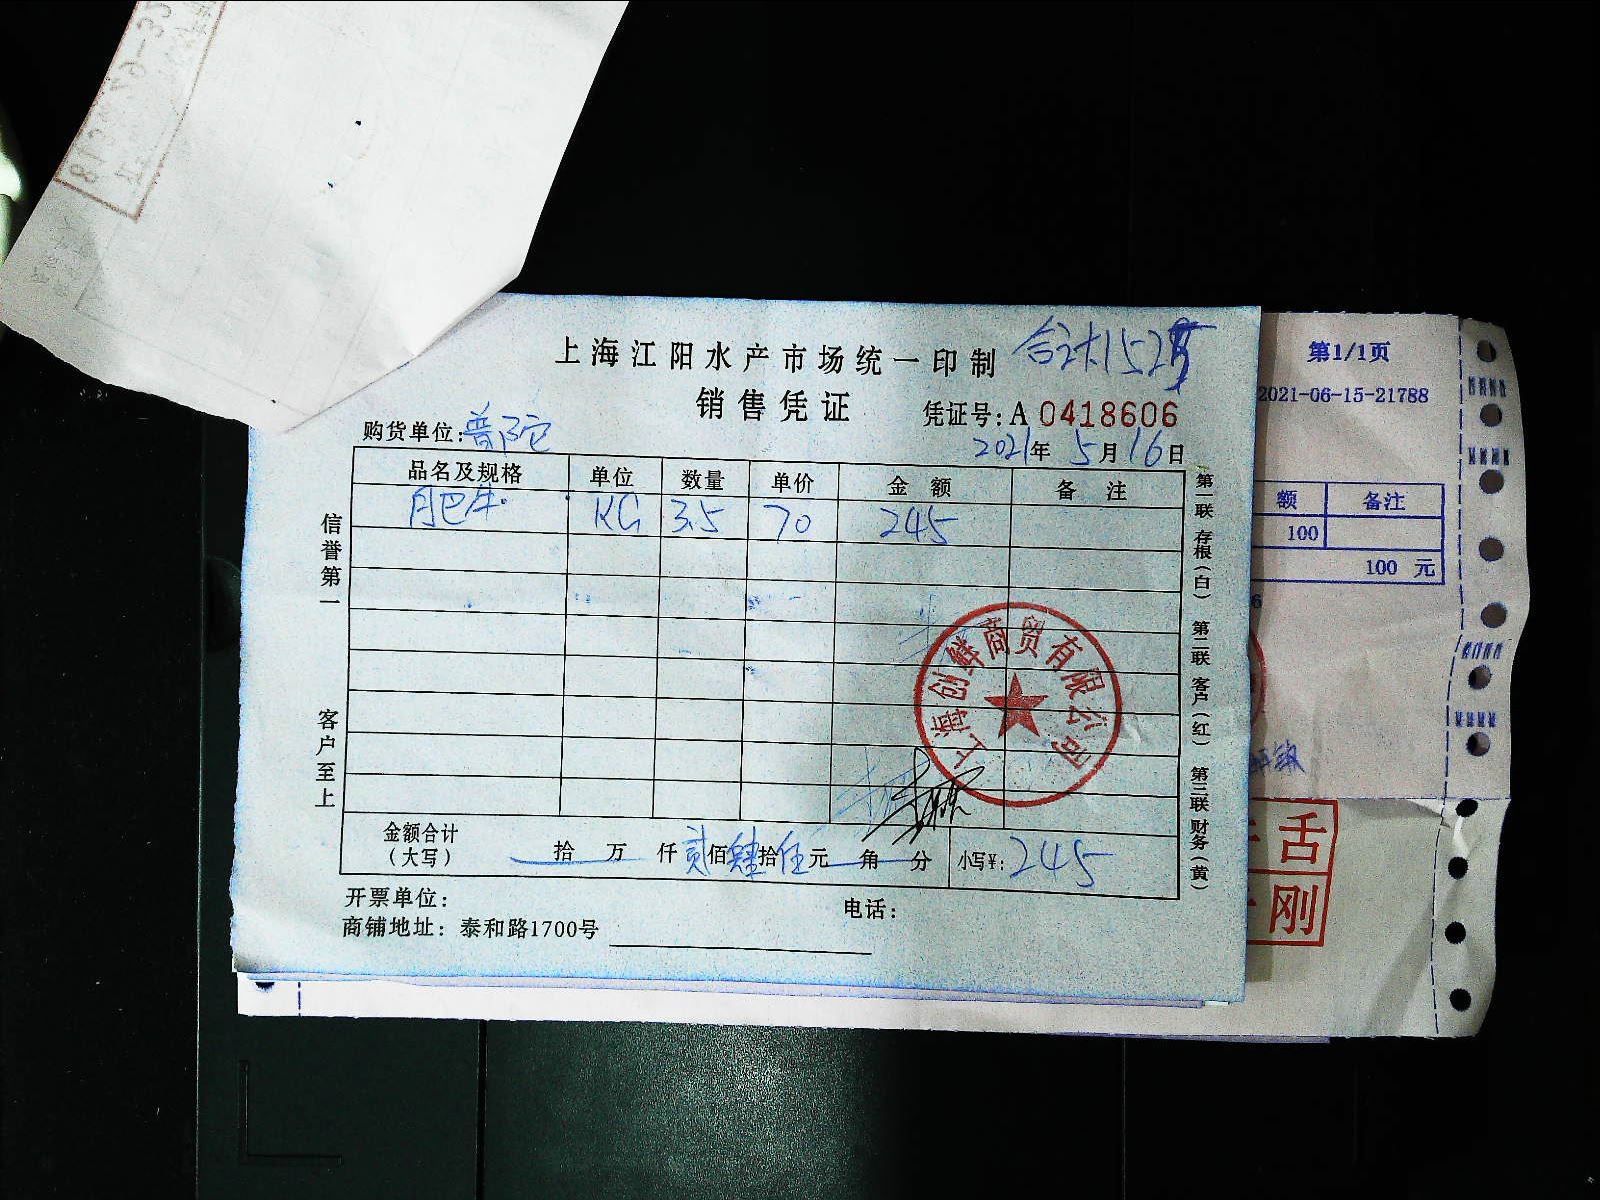 上海江阳水产市场统一印制
合计1525
销售凭证
凭证号:A 0418606
购货单位:普陀
2021年5月16日
品名及规格 单位 数量 单价 金额 备注
月巴牛 KG 3.5 70 245
信誉第一
客户至上
上海创鲜商贸有限公司
金额合计(大写) 拾 万 仟 贰佰肆拾伍元 角 分 小写¥:245
开票单位:
电话:
商铺地址:泰和路1700号
第一联 存根(白) 第二联 客户(红) 第三联 财务(黄)
第1/1页
2021-06-15-21788
额 备注
100
100 元
舌
刚